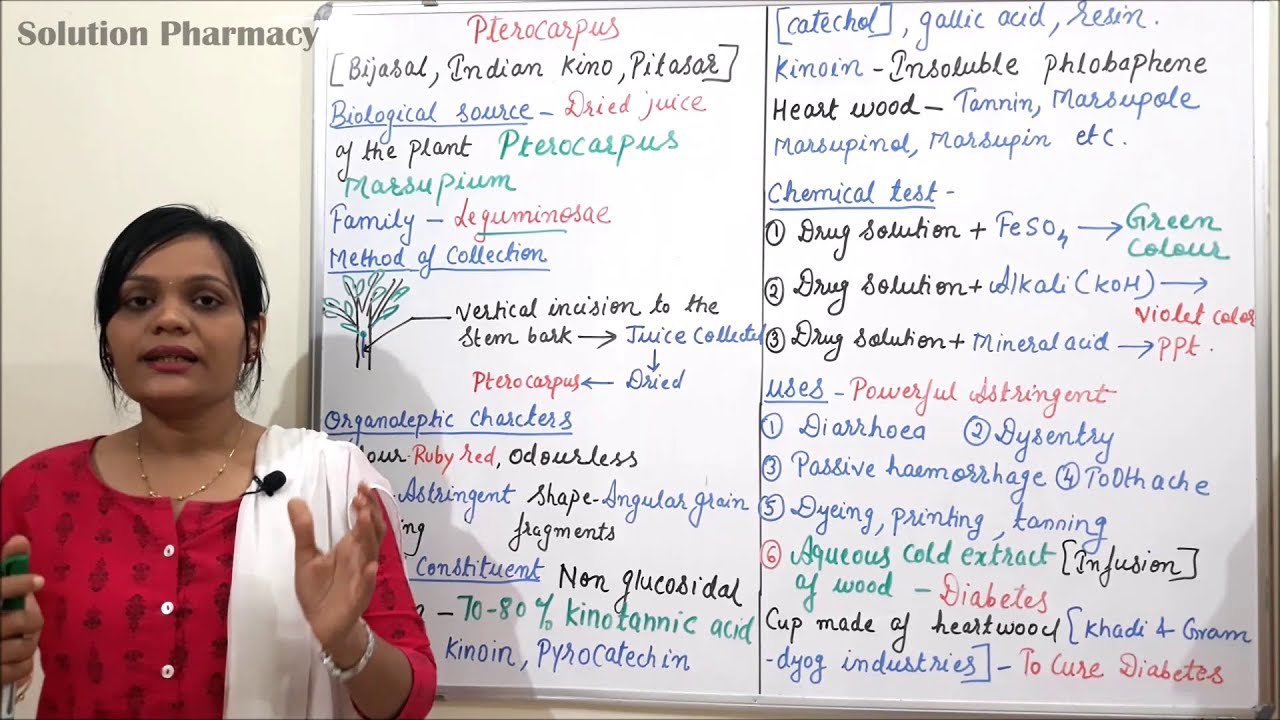 Solution Pharmacy
Pterocarpus
[Bijasal, Indian Kino, Pitasar]
Biological source - Dried juice
of the plant Pterocarpus
Marsupium
Family - Leguminosae
Method of Collection
Vertical incision to the
stem bark → Juice Collected
↓
Pterocarpus ← Dried
Organoleptic charcters
Ruby red, odourless
Astringent shape-Angular grain
fragments
Constituent Non glucosidal
- 70-80% Kinotannic acid
Kinoin, Pyrocatechin
[catechol], gallic acid, resin.
Kinoin - Insoluble phlobaphene
Heart wood - Tannin, Marsupole
Marsupinol, Marsupin etc.
Chemical test -
① Drug solution + FeSO4 → Green
Colour
② Drug solution + Alkali (KOH) →
Violet color
③ Drug solution + Mineral acid → PPt.
uses - Powerful Astringent
① Diarrhoea ② Dysentry
③ Passive haemorrhage ④ Toothache
⑤ Dyeing, printing, tanning
⑥ Aqueous cold extract [Infusion]
of wood - Diabetes
Cup made of heartwood [Khadi & Gram
-dyog industries] - To Cure Diabetes